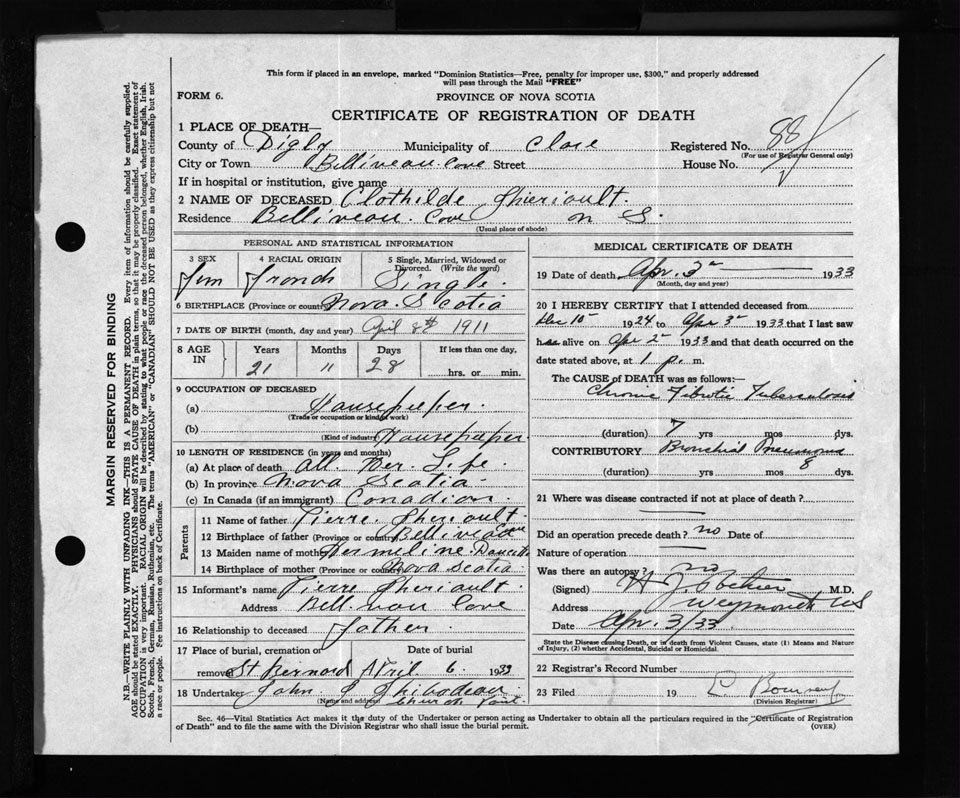 This form if placed in an envelope, marked "Dominion Statistics—Free, penalty for improper use, $300," and properly addressed
will pass through the Mail "FREE"
FORM 6.
PROVINCE OF NOVA SCOTIA
CERTIFICATE OF REGISTRATION OF DEATH
1 PLACE OF DEATH—
County of Digby Municipality of Clare Registered No. 88
(For use of Registrar General only)
City or Town Belliveau Cove Street House No.
If in hospital or institution, give name
2 NAME OF DECEASED Clothilde Theriault.
Residence Belliveau Cove N S.
(Usual place of abode)
PERSONAL AND STATISTICAL INFORMATION
3 SEX 4 RACIAL ORIGIN 5 Single, Married, Widowed or Divorced. (Write the word)
Fem French Single.
6 BIRTHPLACE (Province or country) Nova Scotia
7 DATE OF BIRTH (month, day and year) April 8th 1911
8 AGE IN Years Months Days If less than one day,
21 11 28 hrs. or min.
9 OCCUPATION OF DECEASED
(a) Housekeeper.
(Trade or occupation or kind of work)
(b) Housekeeper
(Kind of industry)
10 LENGTH OF RESIDENCE (in years and months)
(a) At place of death All Her Life.
(b) In province Nova Scotia
(c) In Canada (if an immigrant) Canadian.
Parents
11 Name of father Pierre Theriault.
12 Birthplace of father (Province or country) Belliveau Cove
13 Maiden name of mother Hermeline Doucette
14 Birthplace of mother (Province or country) Nova Scotia
15 Informant's name Pierre Theriault
Address Bellivau Cove
16 Relationship to deceased father.
17 Place of burial, cremation or removal Date of burial
St Bernard April 6 1933
18 Undertaker John J Thibodeau
(Name and address) Church Point.
MEDICAL CERTIFICATE OF DEATH
19 Date of death Apr. 3 1933
(Month, day and year)
20 I HEREBY CERTIFY that I attended deceased from
Dec 10 1924 to Apr 3 1933 that I last saw
h alive on Apr 2 1933 and that death occurred on the
date stated above, at 1 p. m.
The CAUSE OF DEATH was as follows:—
Chronic Fibrotic Tuberculosis
(duration) 7 yrs mos dys.
CONTRIBUTORY Bronchial Pneumonia
(duration) yrs mos 8 dys.
21 Where was disease contracted if not at place of death?
Did an operation precede death? no Date of
Nature of operation
Was there an autopsy? no
(Signed) M.D.
Address Weymouth NS
Date Apr. 3/33
State the Disease causing Death, or in death from Violent Causes, state (1) Means and Nature
of Injury, (2) whether Accidental, Suicidal or Homicidal.
22 Registrar's Record Number
23 Filed 19
(Division Registrar)
Sec. 46—Vital Statistics Act makes it the duty of the Undertaker or person acting as Undertaker to obtain all the particulars required in the "Certificate of Registration
of Death" and to file the same with the Division Registrar who shall issue the burial permit.
(OVER)
MARGIN RESERVED FOR BINDING
N.B.—WRITE PLAINLY WITH UNFADING INK—THIS IS A PERMANENT RECORD. Every item of information should be carefully supplied.
AGE should be stated EXACTLY. PHYSICIANS should STATE CAUSE OF DEATH in plain terms, so that it may be properly classified. Exact statement of
OCCUPATION is very important. RACIAL ORIGIN will be described by stating to what people or race the deceased person belonged, whether English, Irish,
Scotch, French, German, Russian, Ruthenian, etc. The terms "AMERICAN" or "CANADIAN" SHOULD NOT BE USED as they express citizenship but not
a race or people. See instructions on back of Certificate.